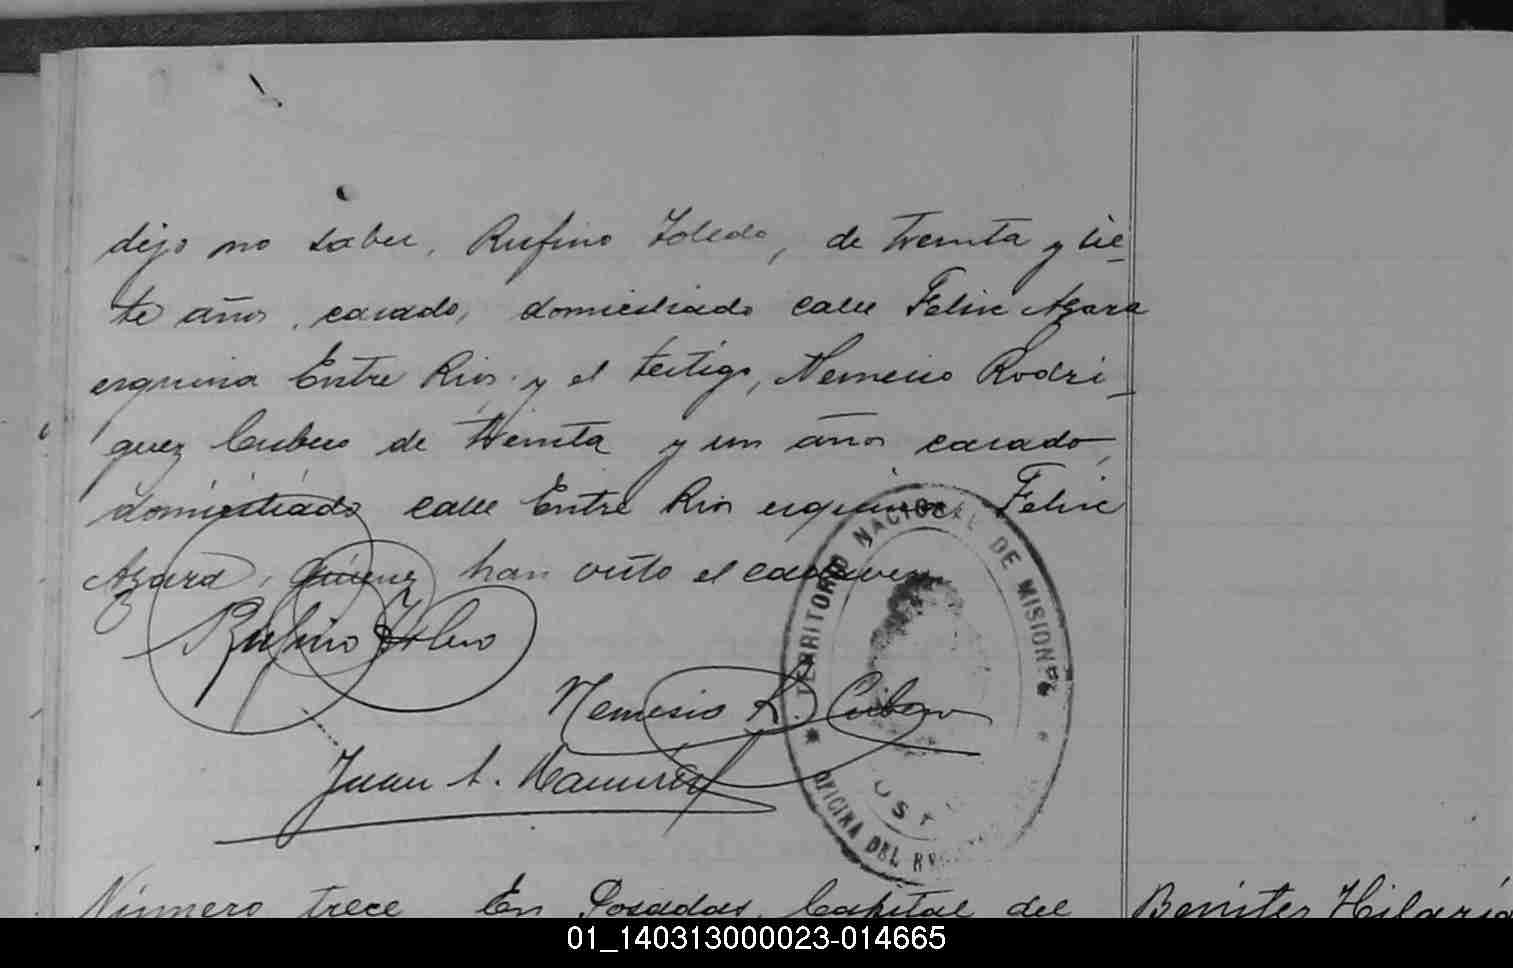 dijo no saber, Rufino Toledo, de treinta y sie-
te años, casado, domiciliado calle Felix Azara
esquina Entre Rios y el testigo, Nemesio Rodri-
guez Cubero de treinta y un años casado,
domiciliado calle Entre Rios esquina Felix
Azara, quienes han visto el cadaver.
Rufino Toledo
Nemesio R. Cubero
Juan A. Ramirez
TERRITORIO NACIONAL DE MISIONES
OFICINA DEL
Número trece En Posadas, Capital del
Benitez Hilario
01_140313000023-014665